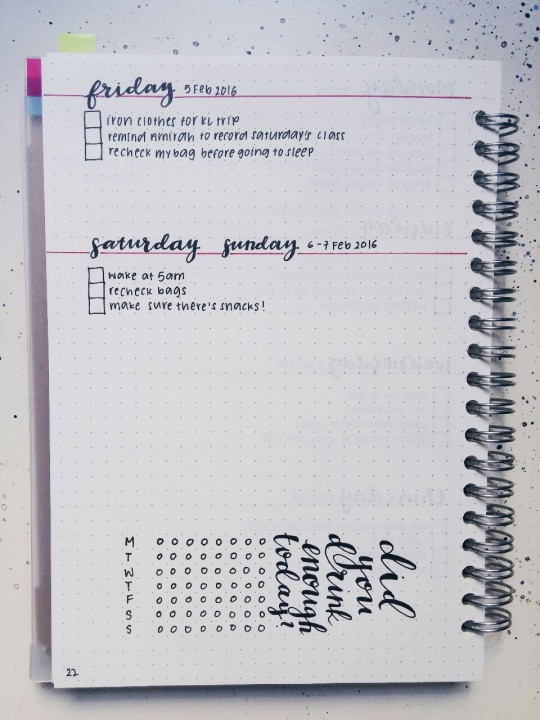 friday 5 Feb 2016
iron clothes for KL trip
remind nmirah to record saturday's class
recheck my bag before going to sleep
saturday sunday 6-7 Feb 2016
wake at 5am
recheck bags
make sure there's snacks!
did
you
drink
enough
today?
M
T
W
T
F
S
S
22